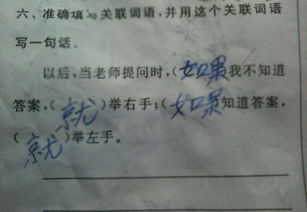 六、准确填写关联词语,并用这个关联词语
写一句话。
以后,当老师提问时,(如果我不知道
答案,(就)举右手;(如果知道答案,
(就)举左手。